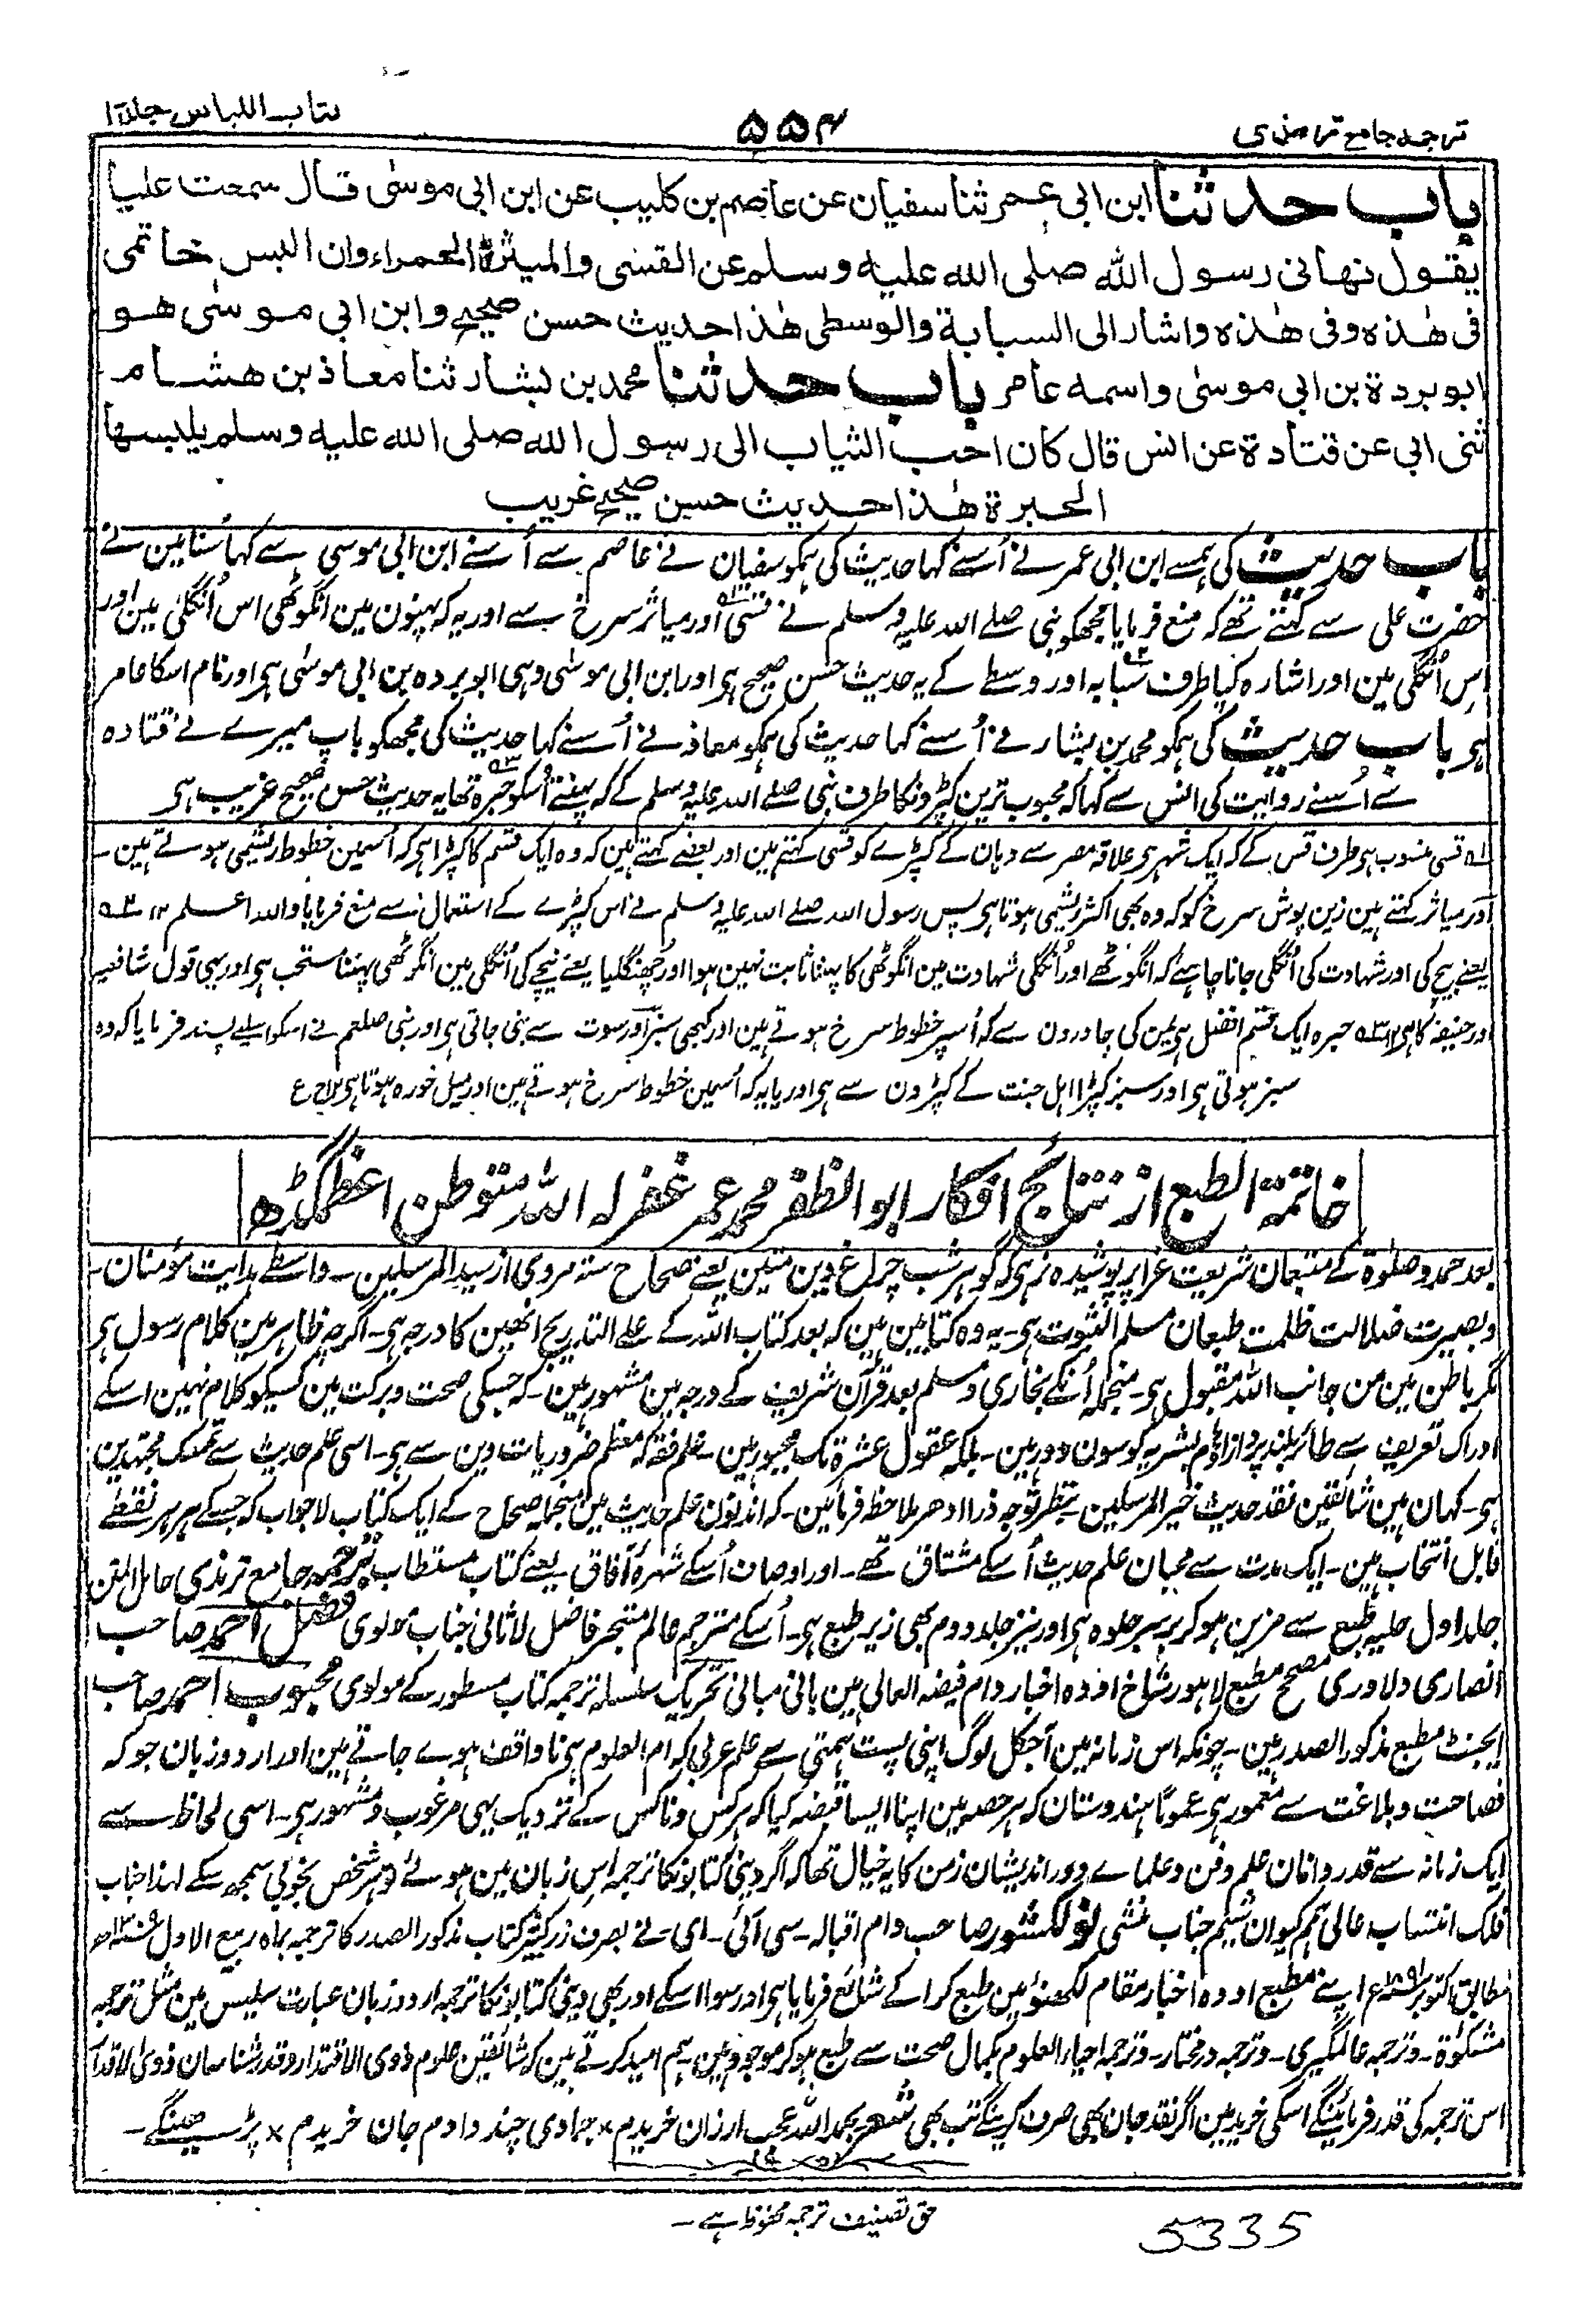 ترجمہ جامع ترمذی
۵۵۴
کتاب اللباس جلد ۱
باب حدثنا ابن ابی عمر ثنا سفیان عن عاصم بن کلیب عن ابن ابی موسیٰ قال سمعت علیا
یقول نهانی رسول الله صلی الله علیه وسلم عن القسی والمیثرة الحمراء وان البس خاتمی
فی هٰذه وفی هٰذه واشار الی السبابة والوسطی هٰذا حدیث حسن صحیح وابن ابی موسیٰ هو
ابو بردة بن ابی موسیٰ واسمه عامر باب حدثنا محمد بن بشار ثنا معاذ بن هشام
ثنی ابی عن قتادة عن انس قال کان احب الثیاب الی رسول الله صلی الله علیه وسلم یلبسها
الحبرة هٰذا حدیث حسن صحیح غریب
باب حدیث کی ہمسے ابن ابی عمر نے اُسنے کہا حدیث کی ہمکو سفیان نے عاصم سے اُسنے ابن ابی موسی سے کہا سُنا مین نے
حضرت علی سے کہتے تھے کہ منع فرمایا مجھکو نبی صلے اللہ علیہ وسلم نے قسی اور میاثر سرخ سے اور یہ کہ پہنون مین انگوٹھی اس اُنگلی مین اور
اِس اُنگلی مین اور اشارہ کیا طرف سبابہ اور وسطے کے یہ حدیث حسن صحیح ہی اور ابن ابی موسٰی وہی ابو بردہ بن ابی موسٰی ہی اور نام اسکا عامر
ہی باب حدیث کی ہمکو محمد بن بشار نے اُسنے کہا حدیث کی ہمکو معاذ نے اُسنے کہا حدیث کی مجھکو باپ میرے نے قتادہ
سے اُسنے روایت کی انس سے کہا کہ محبوب ترین کپڑونکا طرف نبی صلے اللہ علیہ وسلم کے کہ پہنتے اُسکو حبرہ تھا یہ حدیث حسن صحیح غریب ہی
۱ھ قسی منسوب ہی طرف قس کے کہ ایک شہر ہی علاقہ مصر سے وہان کے کپڑے کو قسی کہتے ہین اور بعضے کہتے ہین کہ وہ ایک قسم کا کپڑا ہی کہ اُسمین خطوط ریشمی ہوتے ہین۔
اور میاثر کہتے ہین زین پوش سرخ کو کہ وہ بھی اکثر ریشمی ہوتا ہی پس رسول اللہ صلے اللہ علیہ وسلم نے اس کپڑے کے استعمال سے منع فرمایا واللہ اعلم ۱۲ ۲ھ
یعنے بیچ کی اور شہادت کی اُنگلی جانا چاہیے کہ انگوٹھے اور اُنگلی شہادت مین انگوٹھی کا پہننا ثابت نہین ہوا اور چھنگلیا یعنے نیچے کی اُنگلی مین انگوٹھی پہننا مستحب ہی اور یہی قول شافعیہ
اور حنیفہ کا ہی ۱۲ ۳ھ حبرہ ایک قسم افضل ہی یمن کی چادرون سے کہ اُسپر خطوط سرخ ہوتے ہین اور کبھی سبز اور سوت سے بنی جاتی ہی اور نبی صلعم نے اسکو اسلیے پسند فرمایا کہ وہ
سبز ہوتی ہی اور سبز کپڑا اہل جنت کے کپڑون سے ہی اور یا یہ کہ اُسمین خطوط سرخ ہوتے ہین اور میل خورہ ہوتا ہی
خاتمۃ الطبع از نتائج افکار ابو الظفر محمد عمر غفر لہ اللہ متوطن اعظمگڑھ
بعد حمد و صلٰوۃ کے متبعان شریعت غرا پر پوشیدہ نرہی کہ گوہر شب چراغ دین متین یعنے صحاح ستہ مروی از سید المرسلین۔ واسطے ہدایت مؤمنان۔
و بصیرت ضلالت ظلمت طبعان مسلم الثبوت ہی۔ یہ وہ کتابین ہین کہ بعد کتاب اللہ کے علے التدریج انھین کا درجہ ہی۔ اگرچہ ظاہر مین کلام رسول ہی
مگر باطن مین من جانب اللہ مقبول ہی۔ منجملہ اُنکے بخاری و مسلم بعد قرآن شریف کے درجہ مین مشہور ہین۔ کہ جسکی صحت و برکت مین کسیکو کلام نہین اسکے
ادراک تعریف سے طائر بلند پرواز اوہام بشریہ کوسون دور ہین۔ بلکہ عقول عشرۃ تک مجبور ہین۔ علم فقہ کہ معظم ضروریات دین سے ہی۔ اسی علم حدیث سے تمسک مجتہدین
ہی۔ کہان ہین شائقین نقد حدیث خیر المرسلین۔ بنظر توجہ ذرا ادھر ملاحظہ فرمائین۔ کہ اندنون علم حدیث مین منجملہ صحاح کے ایک کتاب لاجواب کہ جسکے ہر ہر نقطے
قابل انتخاب ہین۔ ایک مدت سے محبان علم حدیث اُسکے مشتاق تھے۔ اور اوصاف اُسکے شہرۂ آفاق یعنے کتاب مستطاب ترجمہ جامع ترمذی حامل المتن
جلد اول حلیہ طبع سے مزین ہوکر بر سر جلوہ ہی اور نیز جلد دوم بھی زیر طبع ہی۔ اُسکے مترجم عالم متبحر فاضل لاثانی جناب مولوی فضل احمد صاحب
انصاری دلاوری مصحح مطبع لاہور شاخ اودہ اخبار دام فیضہ العالی ہین بانی مبانی تحریک سلسلہ ترجمہ کتاب مسطور کے مولوی محبوب احمد صاحب
ایجنٹ مطبع مذکور الصدر ہین۔ چونکہ اس زمانہ مین آجکل لوگ اپنی پست ہمتی سے علم عربی کہ ام العلوم ہی ناواقف ہوے جاتے ہین اور اردو زبان جو کہ
فصاحت و بلاغت سے معمور ہی۔ عموماً ہندوستان کہ ہر حصہ مین اپنا ایسا قبضہ کیا کہ ہر کس و ناکس کے نزدیک یہی مرغوب و مشہور ہی۔ اسی لحاظ سے
ایک زمانہ سے قدر دانان علم و فن و علماے دور اندیشان زمن کا یہ خیال تھا کہ اگر دینی کتابونکا ترجمہ اِس زبان مین ہوئے تو ہر شخص بخوبی سمجھ سکے لہذا جناب
فلک انتساب عالی ہمم کیوان شیم جناب منشی نولکشور صاحب دام اقبالہ۔ سی آئی۔ ای۔ نے بصرف زر کثیر کتاب مذکور الصدر کا ترجمہ بماہ ربیع الاول ۱۳۰۹ھ
مطابق اکتوبر ۱۸۹۱ء اپنے مطبع اودہ اخبار مقام لکھنؤ مین طبع کراکے شائع فرمایا ہی اور سوا اسکے اور بھی دینی کتابونکا ترجمہ اردو زبان عبارت سلیس مین مثل ترجمہ
مشکوٰۃ۔ و ترجمہ عالمگیری۔ و ترجمہ درمختار۔ و ترجمہ احیاء العلوم بکمال صحت سے طبع ہوکر موجود ہین۔ ہم امید کرتے ہین کہ شائقین علوم ذوی الاقتدار و قدر شناسان
اس ترجمہ کی قدر فرمائینگے اسکی خرید مین اگر نقد جان بھی صرف کرینگے تب بھی شعر بحمد اللہ عجب ارزان خریدم × جمادی چند دادم جان خریدم ×
حق تصنیف ترجمہ محفوظ ہے۔
5335